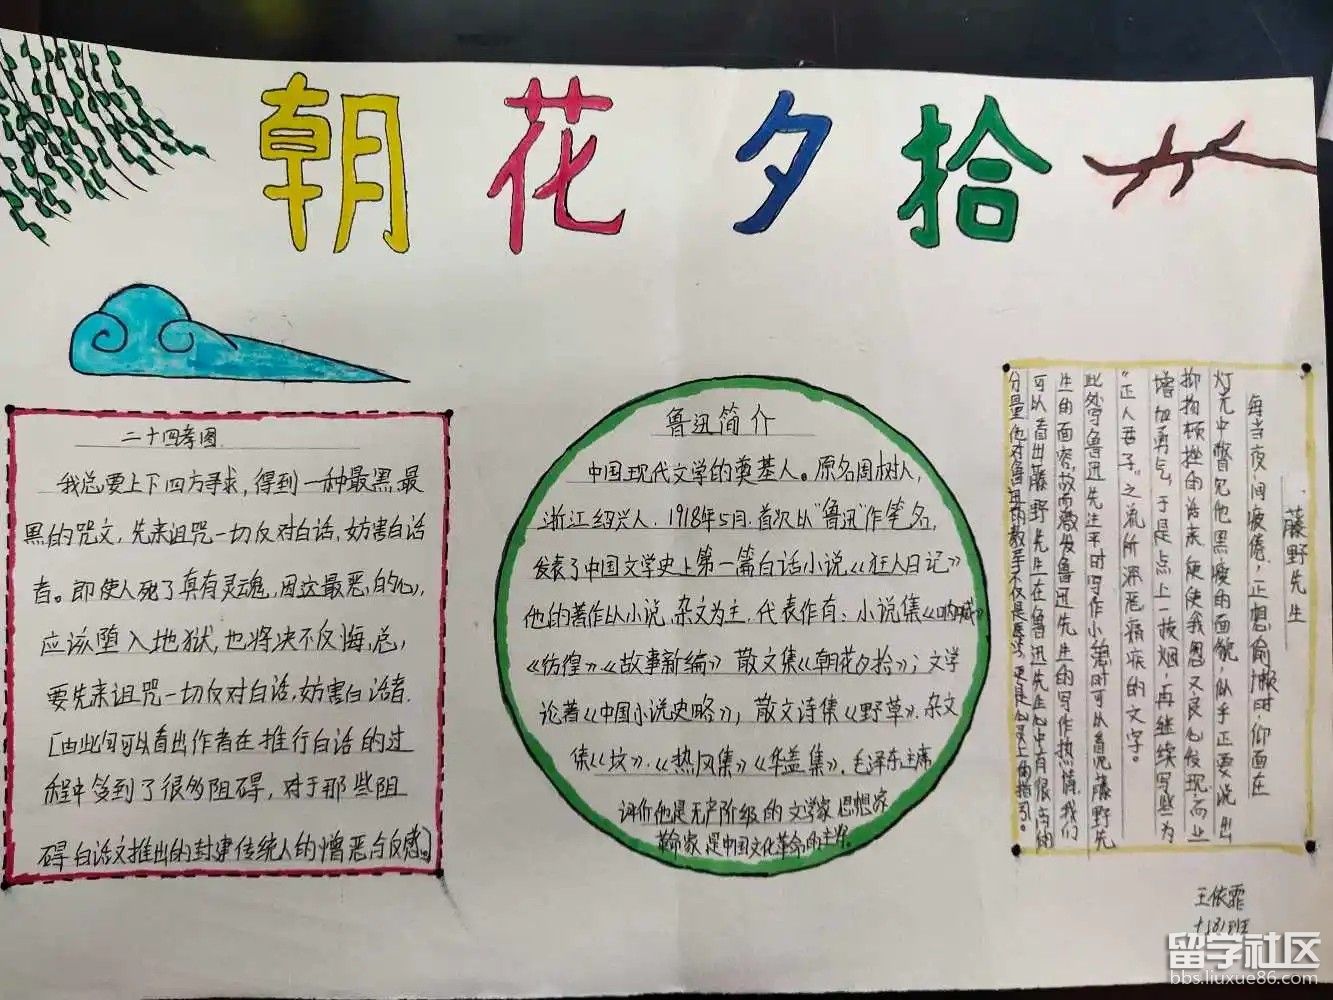 朝花夕拾
二十四孝图
我总要上下四方寻求，得到一种最黑最
黑的咒文，先来诅咒一切反对白话，妨害白话
者。即使人死了真有灵魂，因这最恶的心，
应该堕入地狱，也将决不反悔，总
要先来诅咒一切反对白话，妨害白话者.
[由此句可以看出作者在推行白话的过
程中多到了很多阻碍，对于那些阻
碍白话文推出的封建传统人的憎恶与反感]
鲁迅简介
中国现代文学的奠基人。原名周树人，
浙江绍兴人.1918年5月.首次以"鲁迅"作笔名，
发表了中国文学史上第一篇白话小说《狂人日记》
他的著作以小说,杂文为主.代表作有：小说集《呐喊》
《彷徨》《故事新编》散文集《朝花夕拾》；文学
论著《中国小说史略》；散文诗集《野草》.杂文
集《坟》.《热风集》《华盖集》.毛泽东主席
评价他是无产阶级的文学家思想家
革命家是中国文化革命的主将。
、藤野先生
每当夜间疲倦，正想偷懒时，仰面在
灯光中瞥见他黑瘦的面貌，似乎正要说出
抑扬顿挫的话来，便使我忽又良心发现，而且
增加勇气，于是点上一枝烟，再继续写些为
"正人君子"之流所深恶痛疾的文字。
此处写鲁迅先生平时写作小 时可以看见藤野先
生的面容，故而激发鲁迅先生的写作热情，我们
可以看出藤野先生在鲁迅先生心中有很高的
分量他对鲁迅的教导不仅是医学，更是心灵上的指引。
王依霏
七(8)班
留学社区
bbs.liuxue86.com